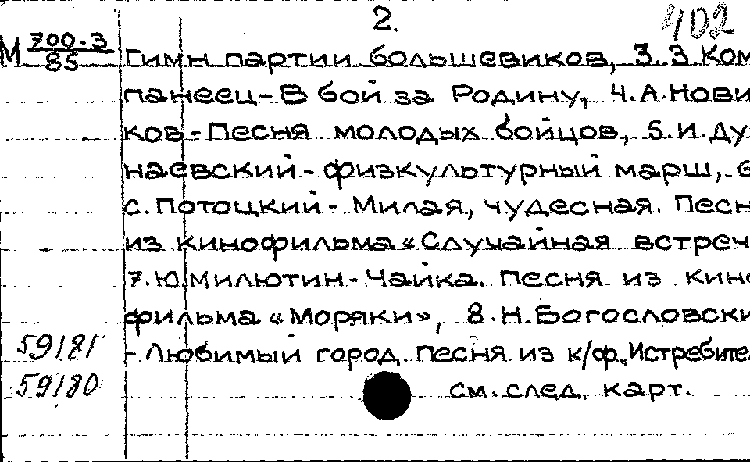 2. 402
М 700-3/85 Гимн партии большевиков, 3. З. Ком
панеец - В бой за Родину, 4. А. Нови
ков - Песня молодых бойцов, 5. И. Ду
наевский - физкультурный марш, 6
с. Потоцкий - Милая, чудесная. Песн
из кинофильма «Случайная встреч
7. Ю. Милютин - Чайка. Песня из кино
фильма «Моряки», 8. Н. Богословски
59181 - Любимый город. Песня из к/ф „Истребите
59180 см. след. карт.